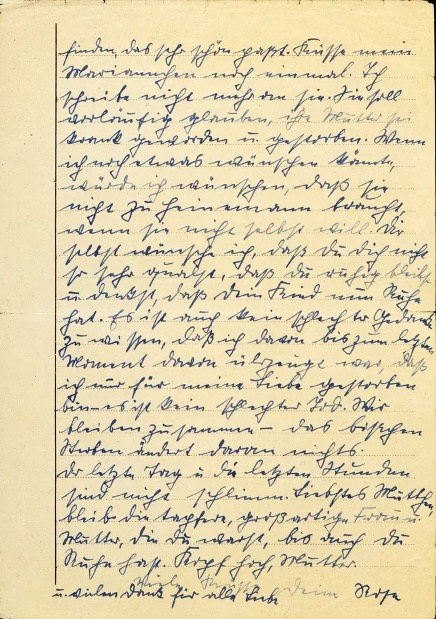 finden, das sehr schön paßt. Küsse mein
Mariannchen noch einmal. Ich
schreibe nicht mehr an sie. Sie soll
vorläufig glauben, ihre Mutter sei
krank geworden u. gestorben. Wenn
ich noch etwas wünschen könnte,
würde ich wünschen, daß sie
nicht zu Heinemann braucht,
wenn sie nicht selbst will. Dir
selbst wünsche ich, daß du dich nicht
so sehr quälst, daß du ruhig bleibst
u. denkst, daß dein Kind nun Ruhe
hat. Es ist auch kein schlechter Gedanke
zu wissen, daß ich davon bis zum letzten
Moment davon überzeugt war, daß
ich nur für meine Liebe gestorben
bin – es ist kein schlechter Tod. Wir
bleiben zusammen – das bißchen
Sterben ändert daran nichts.
Der letzte Tag u. die letzten Stunden
sind nicht schlimm. Liebstes Mutthen,
bleib die tapfere, großartige Frau u.
Mutter, die du warst, bis auch du
Ruhe hast. Kopf hoch, Mutter.
Viele Küsse deine Rose
u. vielen Dank für alle Liebe